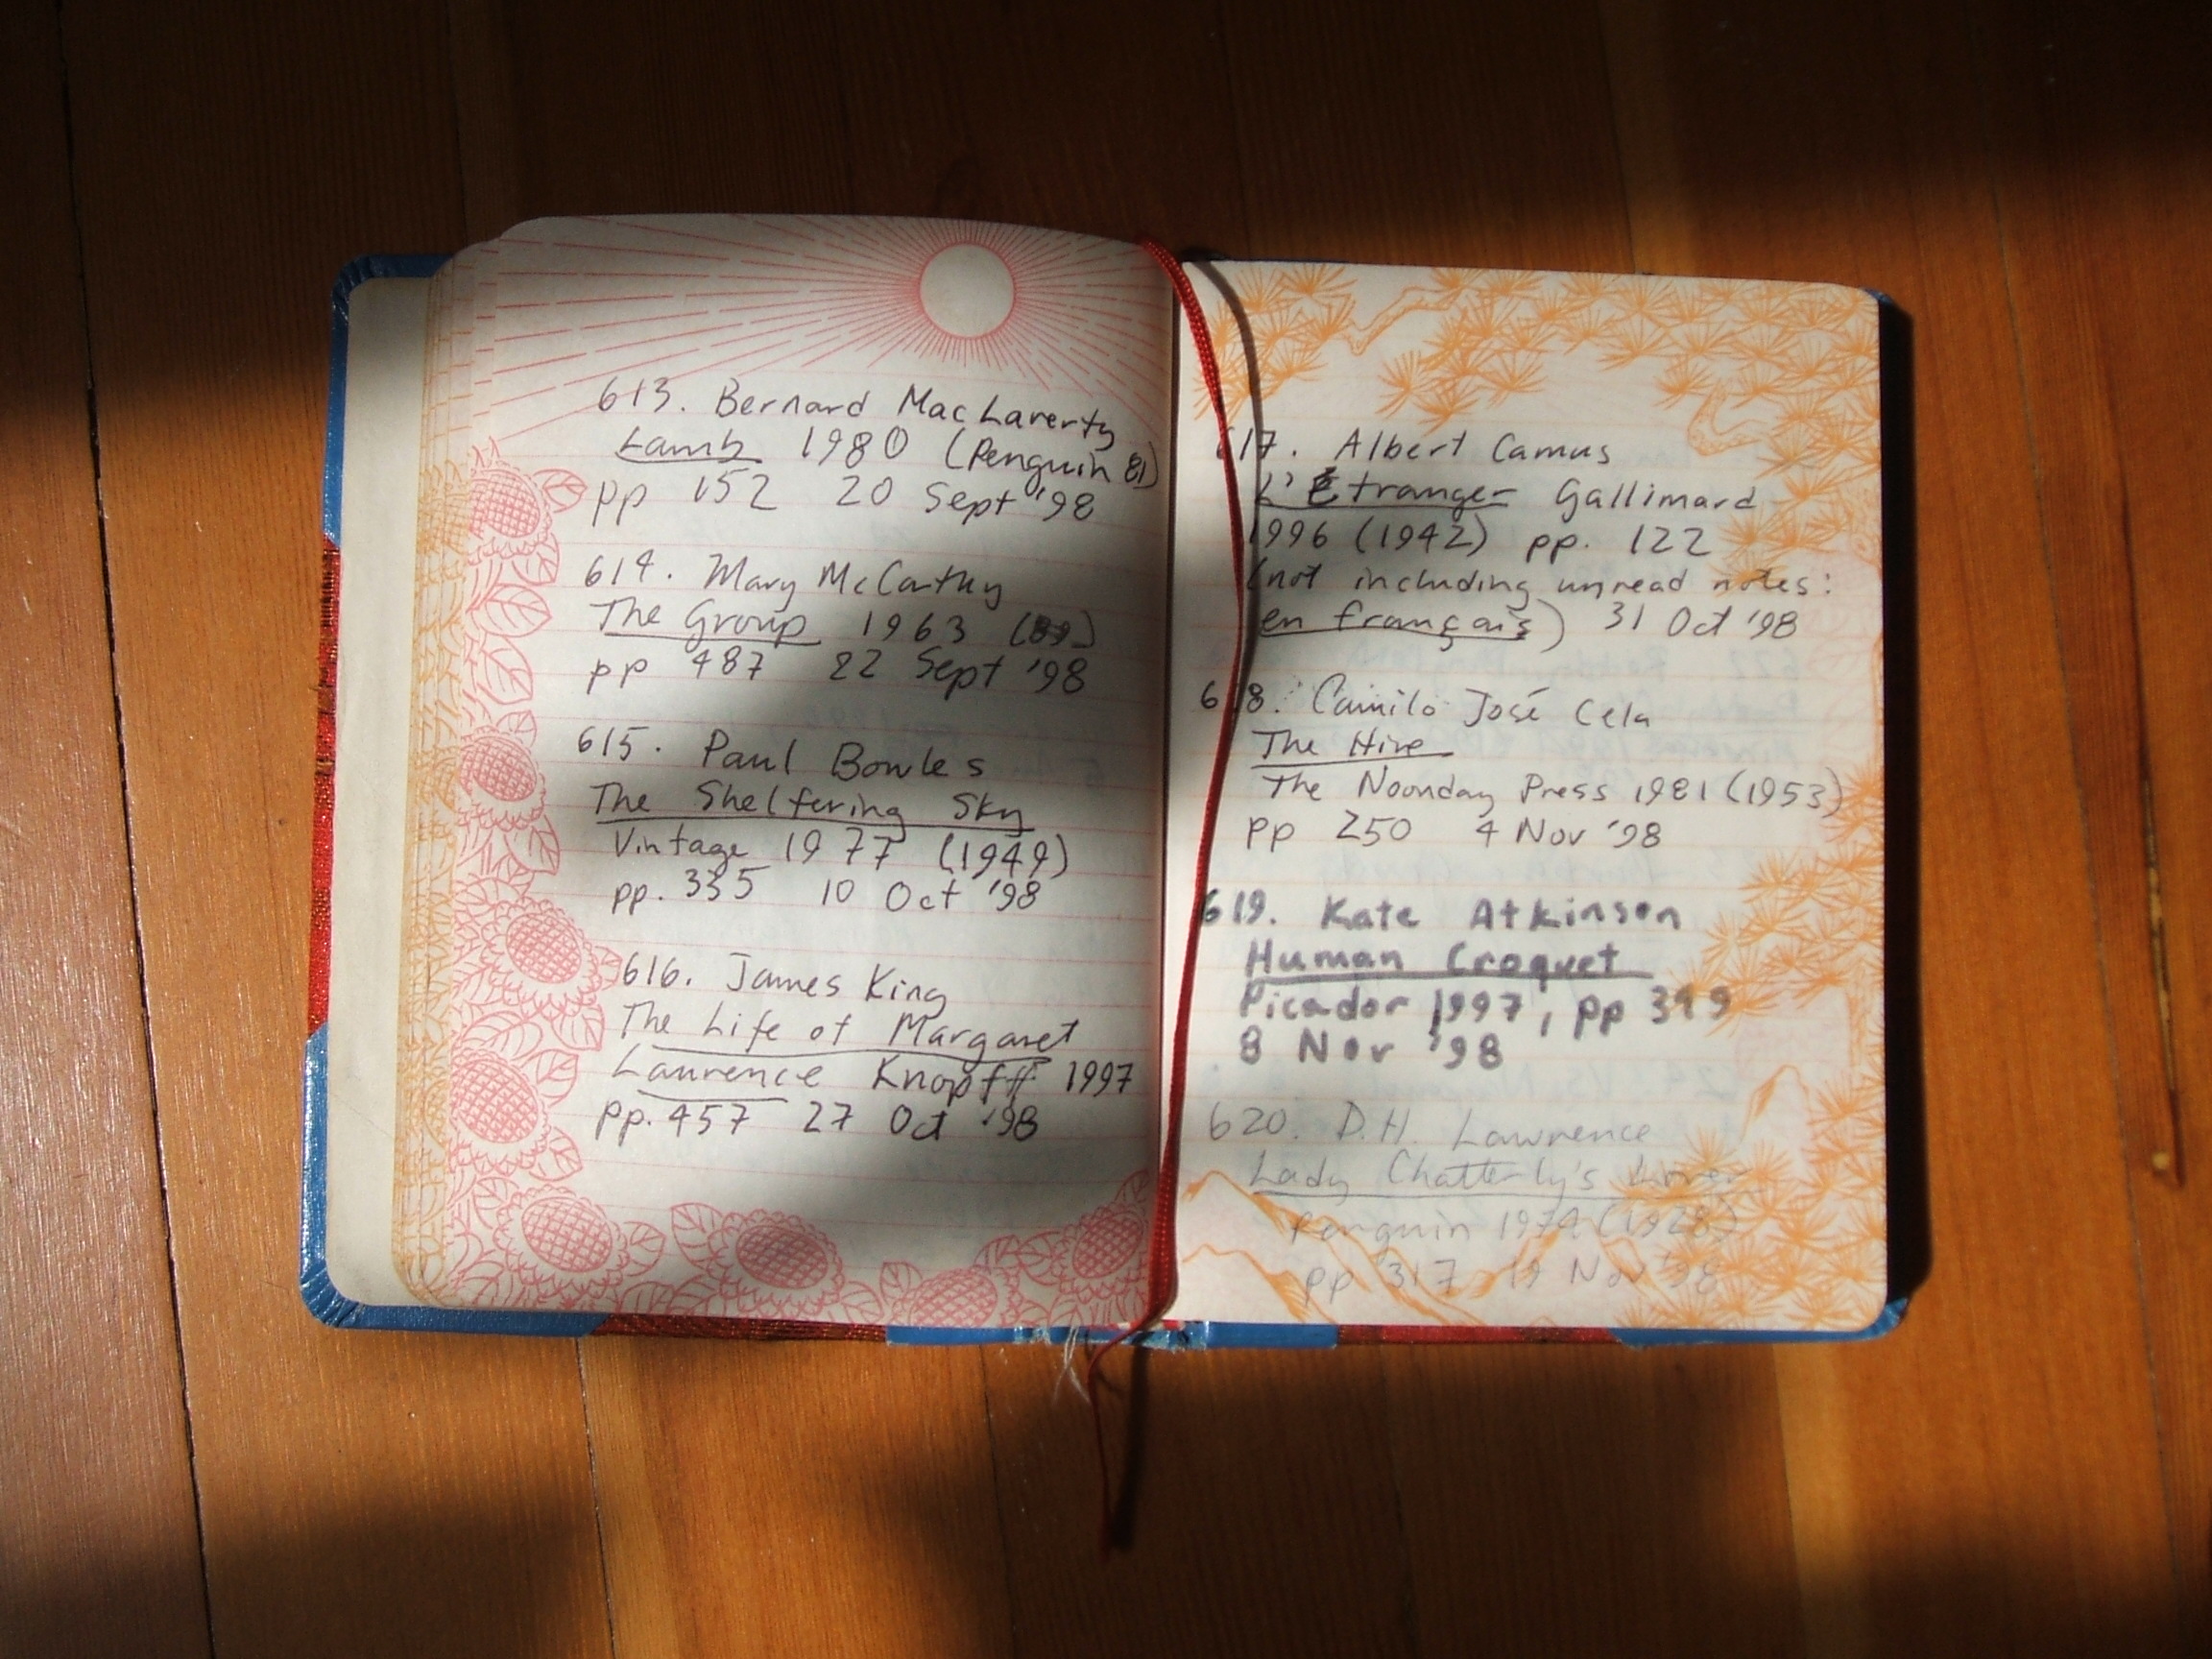 613. Bernard MacLaverty
Lamb 1980 (Penguin 81)
pp 152 20 Sept '98
614. Mary McCarthy
The Group 1963
pp 487 22 Sept '98
615. Paul Bowles
The Sheltering Sky
Vintage 1977 (1949)
pp. 335 10 Oct '98
616. James King
The Life of Margaret
Laurence Knopff 1997
pp. 457 27 Oct '98
617. Albert Camus
L'Étranger Gallimard
1996 (1942) pp. 122
(not including unread notes:
en français) 31 Oct '98
618. Camilo José Cela
The Hive
The Noonday Press 1981 (1953)
pp 250 4 Nov '98
619. Kate Atkinson
Human Croquet
Picador 1997, pp
8 Nov '98
620. D.H. Lawrence
Lady Chatterly's Lover
Penguin 1974 (1928)
pp 317 19 Nov '98